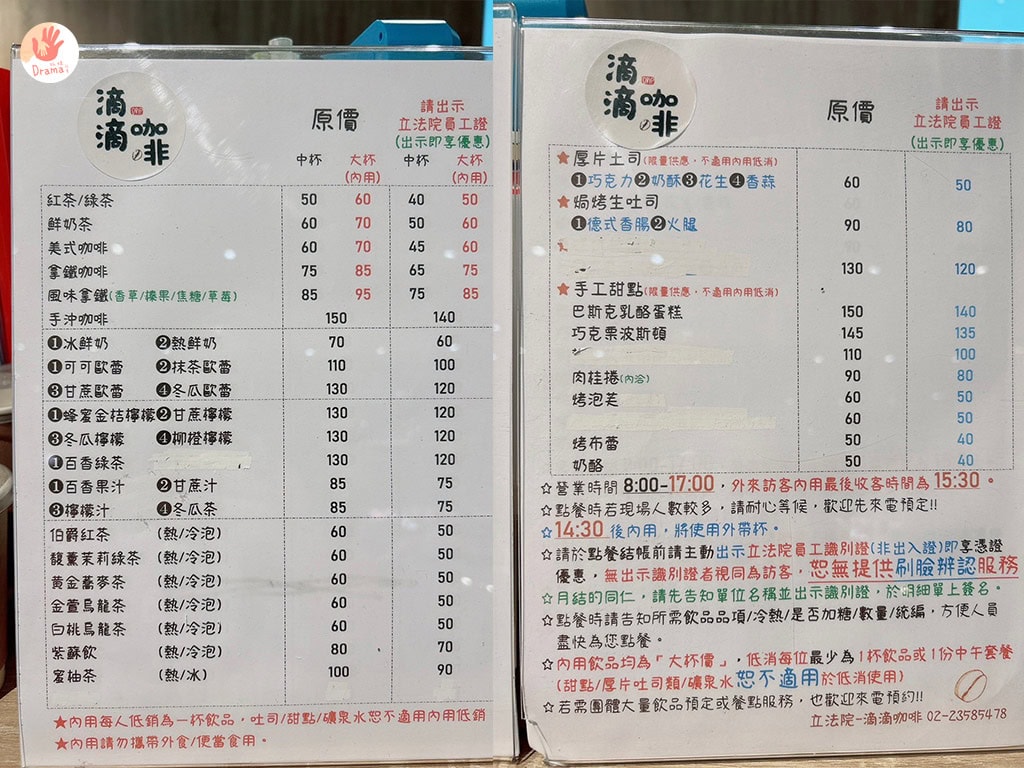 Drama
滴滴咖非
原價
請出示
立法院員工證
(出示即享優惠)
中杯 大杯 中杯 大杯
(內用) (內用)
紅茶/綠茶 50 60 40 50
鮮奶茶 60 70 50 60
美式咖啡 60 70 45 60
拿鐵咖啡 75 85 65 75
風味拿鐵(香草/榛果/焦糖/草莓) 85 95 75 85
手沖咖啡 150 140
❶冰鮮奶 ❷熱鮮奶 70 60
❶可可歐蕾 ❷抹茶歐蕾 110 100
❸甘蔗歐蕾 ❹冬瓜歐蕾 130 120
❶蜂蜜金桔檸檬❷甘蔗檸檬 130 120
❸冬瓜檸檬 ❹柳橙檸檬 130 120
❶百香綠茶 130 120
❶百香果汁 ❷甘蔗汁 85 75
❸檸檬汁 ❹冬瓜茶 85 75
伯爵紅茶 (熱/冷泡) 60 50
馥薰茉莉綠茶 (熱/冷泡) 60 50
黃金蕎麥茶 (熱/冷泡) 60 50
金萱烏龍茶 (熱/冷泡) 60 50
白桃烏龍茶 (熱/冷泡) 60 50
紫蘇飲 (熱/冷泡) 80 70
蜜柚茶 (熱/冰) 100 90
★內用每人低銷為一杯飲品，吐司/甜點/礦泉水恕不適用內用低銷
★內用請勿攜帶外食/便當食用。
滴滴咖非
原價
請出示
立法院員工證
(出示即享優惠)
★厚片土司(限量供應，不適用內用低消)
❶巧克力❷奶酥❸花生❹香蒜 60 50
★焗烤生吐司
❶德式香腸❷火腿 90 80
★
130 120
★手工甜點(限量供應，不適用內用低消)
巴斯克乳酪蛋糕 150 140
巧克栗波斯頓 145 135
110 100
肉桂捲(內洽) 90 80
烤泡芙 60 50
60 50
烤布蕾 50 40
奶酪 50 40
☆營業時間 8:00-17:00，外來訪客內用最後收客時間為 15:30。
☆點餐時若現場人數較多，請耐心等候，歡迎先來電預定!!
☆14:30 後內用，將使用外帶杯。
☆請於點餐結帳前請主動出示立法院員工識別證(非出入證)即享憑證
優惠，無出示識別證者視同為訪客，恕無提供刷臉辨認服務
☆月結的同仁，請先告知單位名稱並出示識別證，於明細單上簽名。
☆點餐時請告知所需飲品品項/冷熱/是否加糖/數量/統編，方便人員
盡快為您點餐。
☆內用飲品均為「大杯價」，低消每位最少為1杯飲品或1份中午套餐
(甜點/厚片吐司類/礦泉水恕不適用於低消使用)
☆若需團體大量飲品預定或餐點服務，也歡迎來電預約!!
立法院-滴滴咖啡 02-23585478